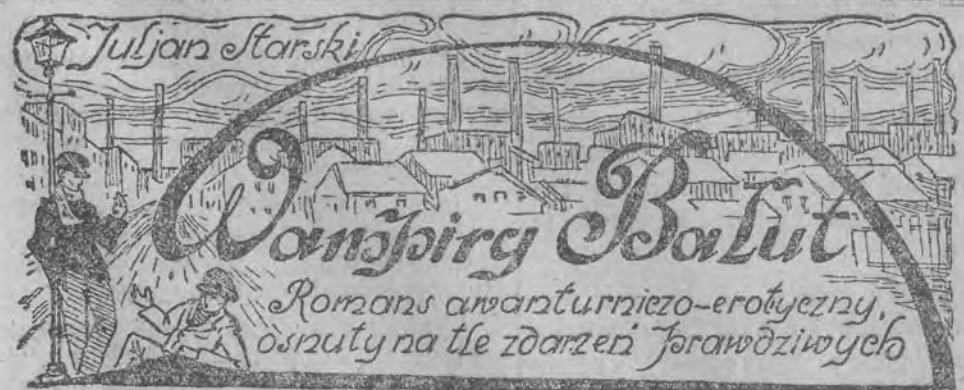 Juljan Starski
Wampiry Bałut
Romans awanturniczo-erotyczny,
osnuty na tle zdarzeń prawdziwych